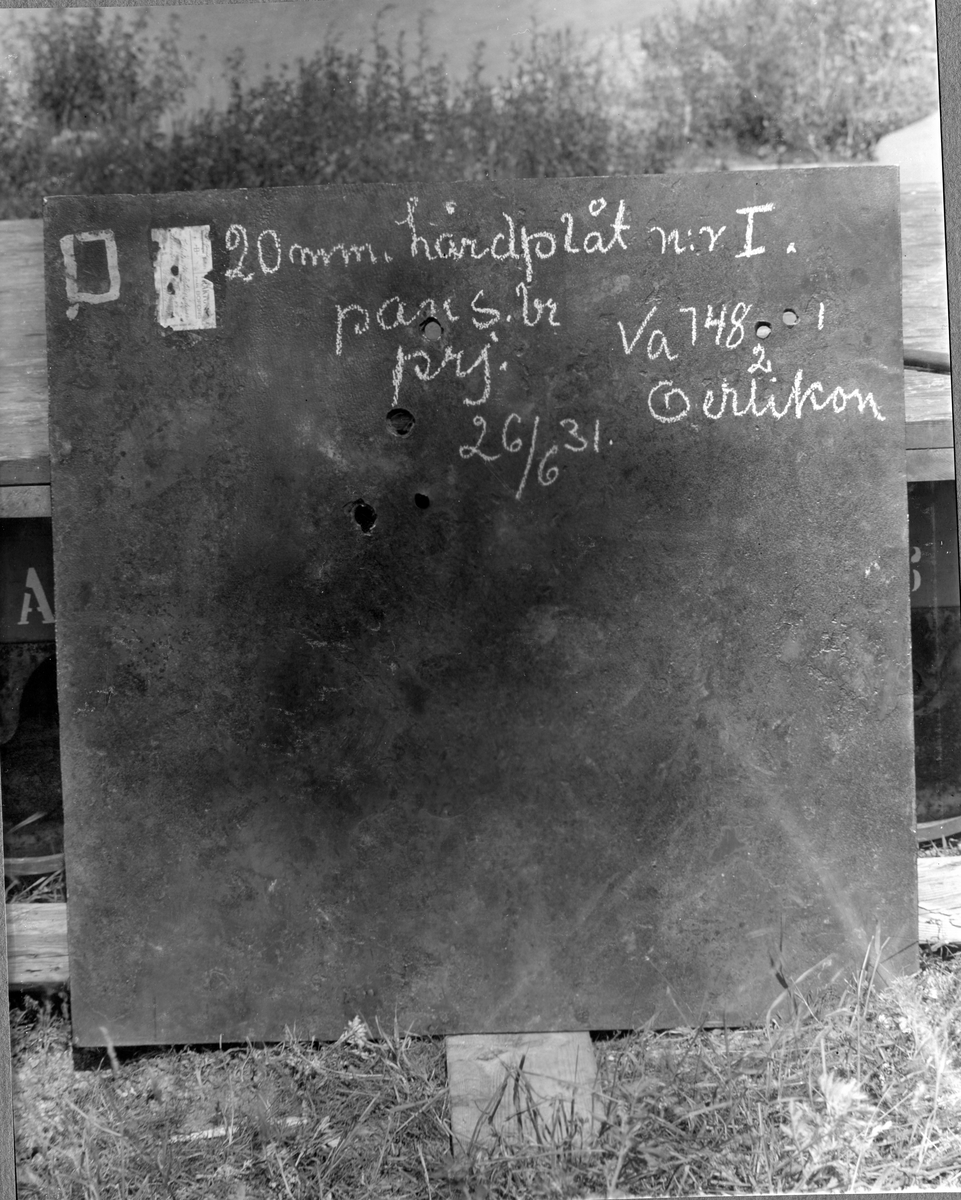 20 mm. hårdplåt n:r I.
pans.br
prj.
Va 748 1
2
Oerlikon
26/6 31.
A